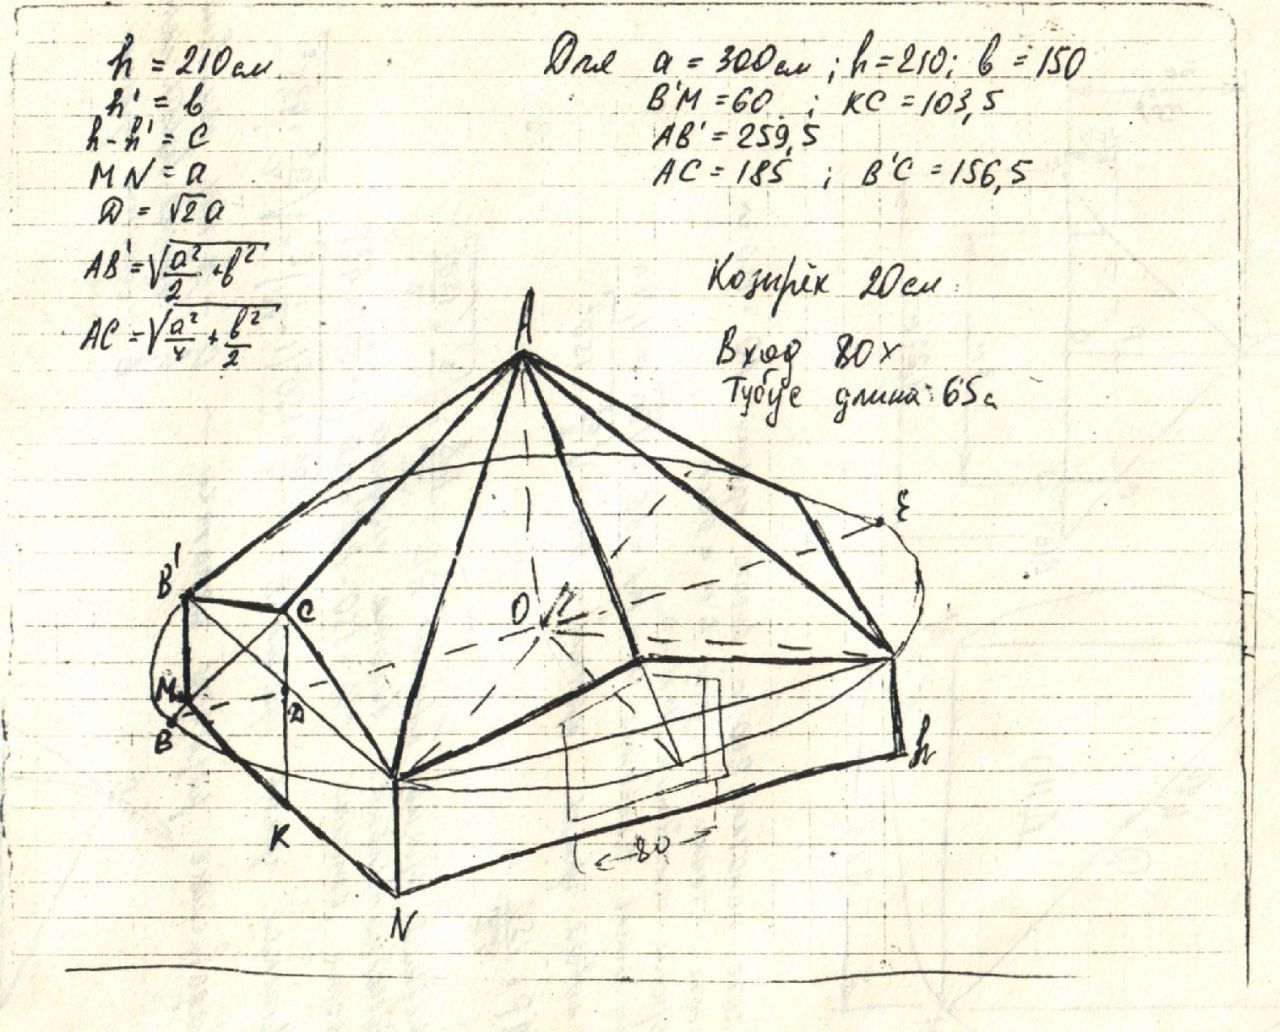 h = 210 см
h' = в
h - h' = c
MN = a
D = √2 a
AB' = √a²/2 + в²
AC = √a²/4 + в²/2
Для a = 300 см ; h = 210 ; в = 150
B'M = 60 ; KC = 103,5
AB' = 259,5
AC = 185 ; B'C = 156,5
Козырёк 20 см
Вход 80 х
Тубус длина 65 с
A
E
B'
C
O
M
D
B
h
K
80
N